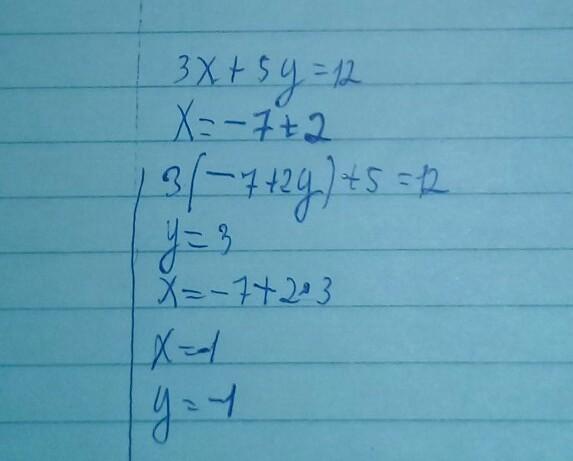 3x+5y=12
x=-7+2
3(-7+2y)+5=12
y=3
x=-7+2•3
x=-1
y=-1